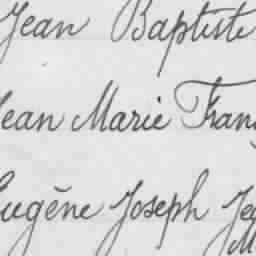 Jean Baptiste
Jean Marie Fran
Eugène Joseph Je
M